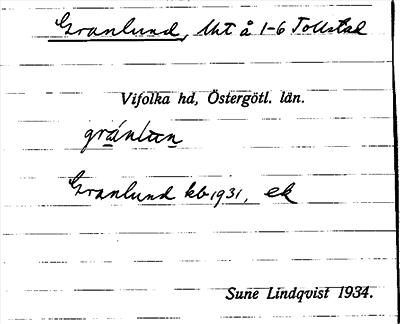 Granlund, lht å 1-6 Tollstad
Vifolka hd, Östergötl. län.
gránlun
Granlund kb 1931, ek
Sune Lindqvist 1934.